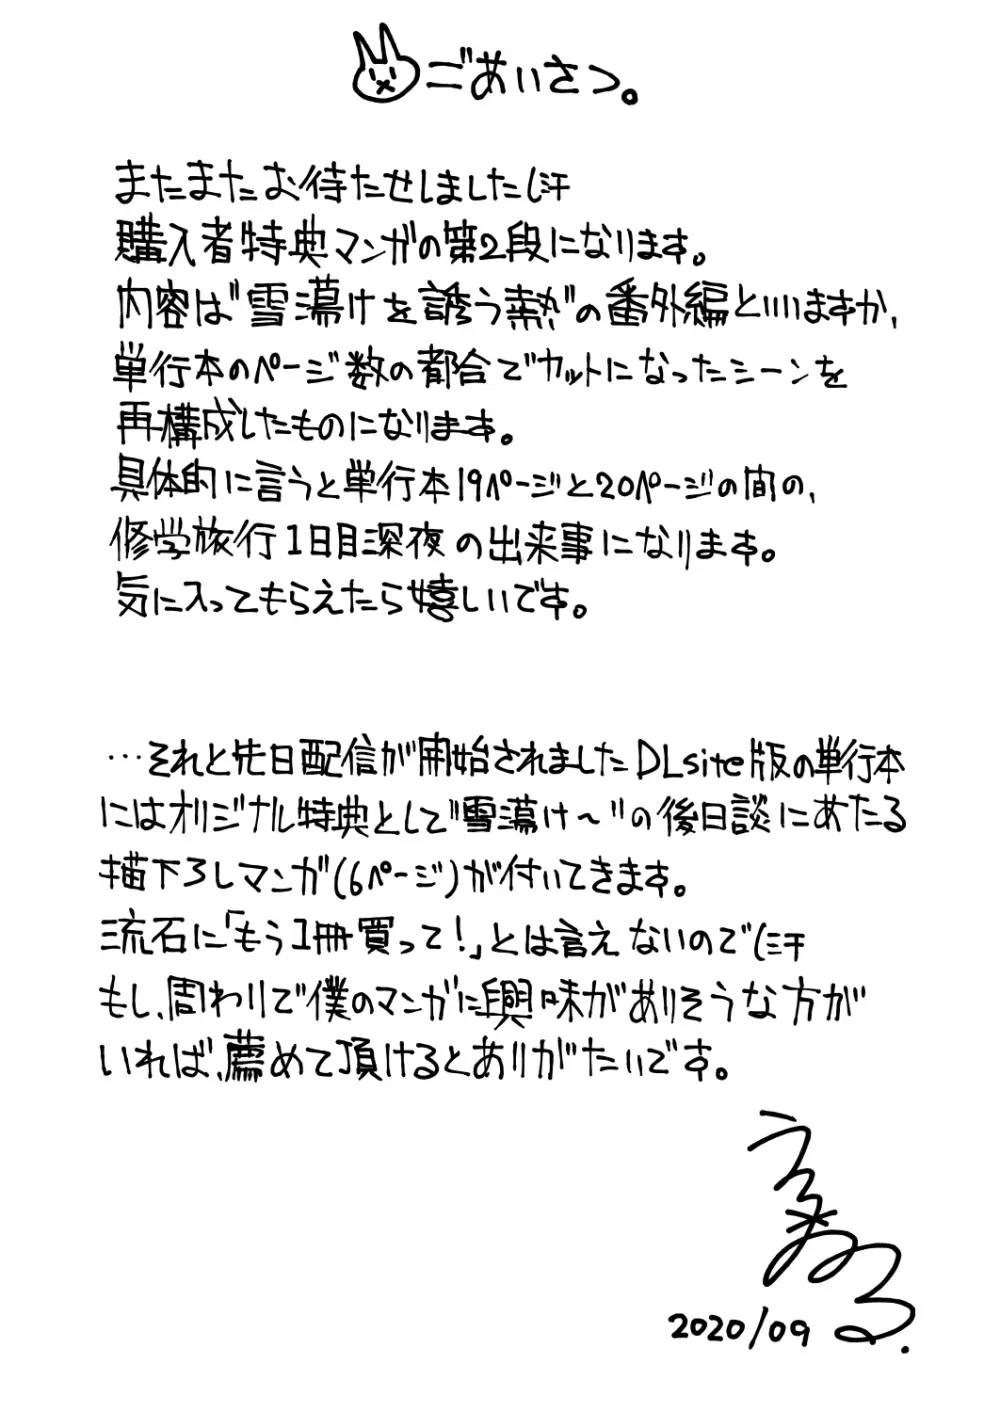 ごあいさつ。
またまたお待たせしました(汗
購入者特典マンガの第2段になります。
内容は"雪蕩けを誘う熱"の番外編といいますか、
単行本のページ数の都合でカットになったシーンを
再構成したものになります。
具体的に言うと単行本19ページと20ページの間の、
修学旅行1日目深夜の出来事になります。
気に入ってもらえたら嬉しいです。
…それと先日配信が開始されましたDLsite版の単行本
にはオリジナル特典として"雪蕩け〜"の後日談にあたる
描下ろしマンガ(6ページ)が付いてきます。
流石に「もう1冊買って!」とは言えないので(汗
もし、周わりで僕のマンガに興味がありそうな方が
いれば、薦めて頂けるとありがたいです。
2020/09